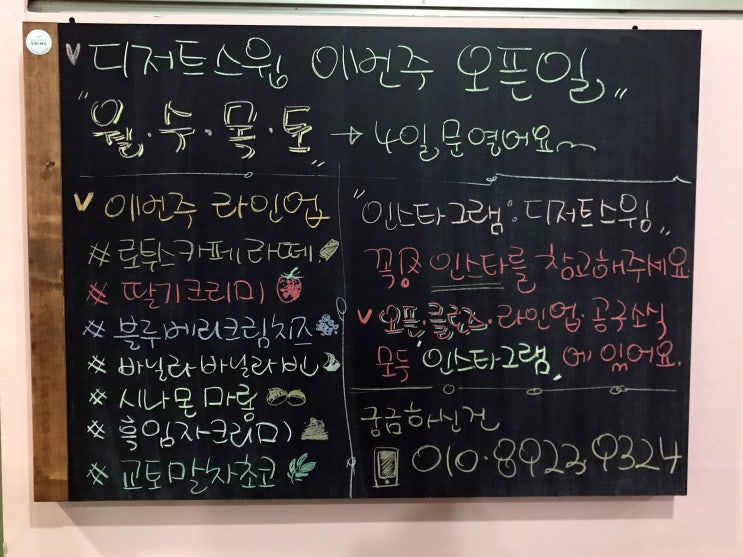 디저트스윔 이번주 오픈일,,
"월·수·목·토" → 4일 문 열어요~
이번주 라인업
# 로투스카페라떼
# 딸기크리미
# 블루베리크림치즈
# 바닐라바닐라빈
# 시나몬마롱
# 흑임자크리미
# 교토말차초코
"인스타그램": 디저트스윔,,
꼭꼭 인스타를 참고해주세요.
오픈·클로즈·라인업·공구소식
모두 인스타그램에 있어요.
궁금하신건
010·8923·9324